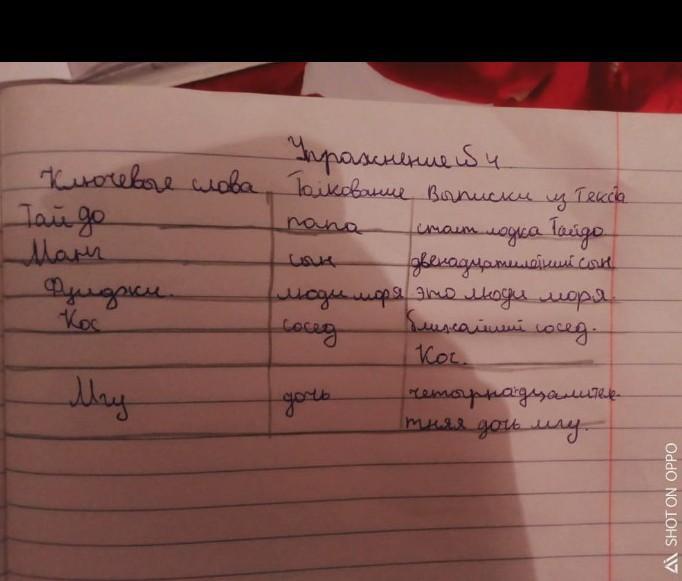 Упражнение 54
Ключевые слова Толкование Выписки из текста
Тайдо папа стоит лодка Тайдо
Манг сын двенадцатилетний сын
Фуиджи. люди моря это люди моря.
Кос сосед ближайший сосед.
Кос.
Мгу дочь четырнадцатилет-
тняя дочь мгу.
SHOT ON OPPO